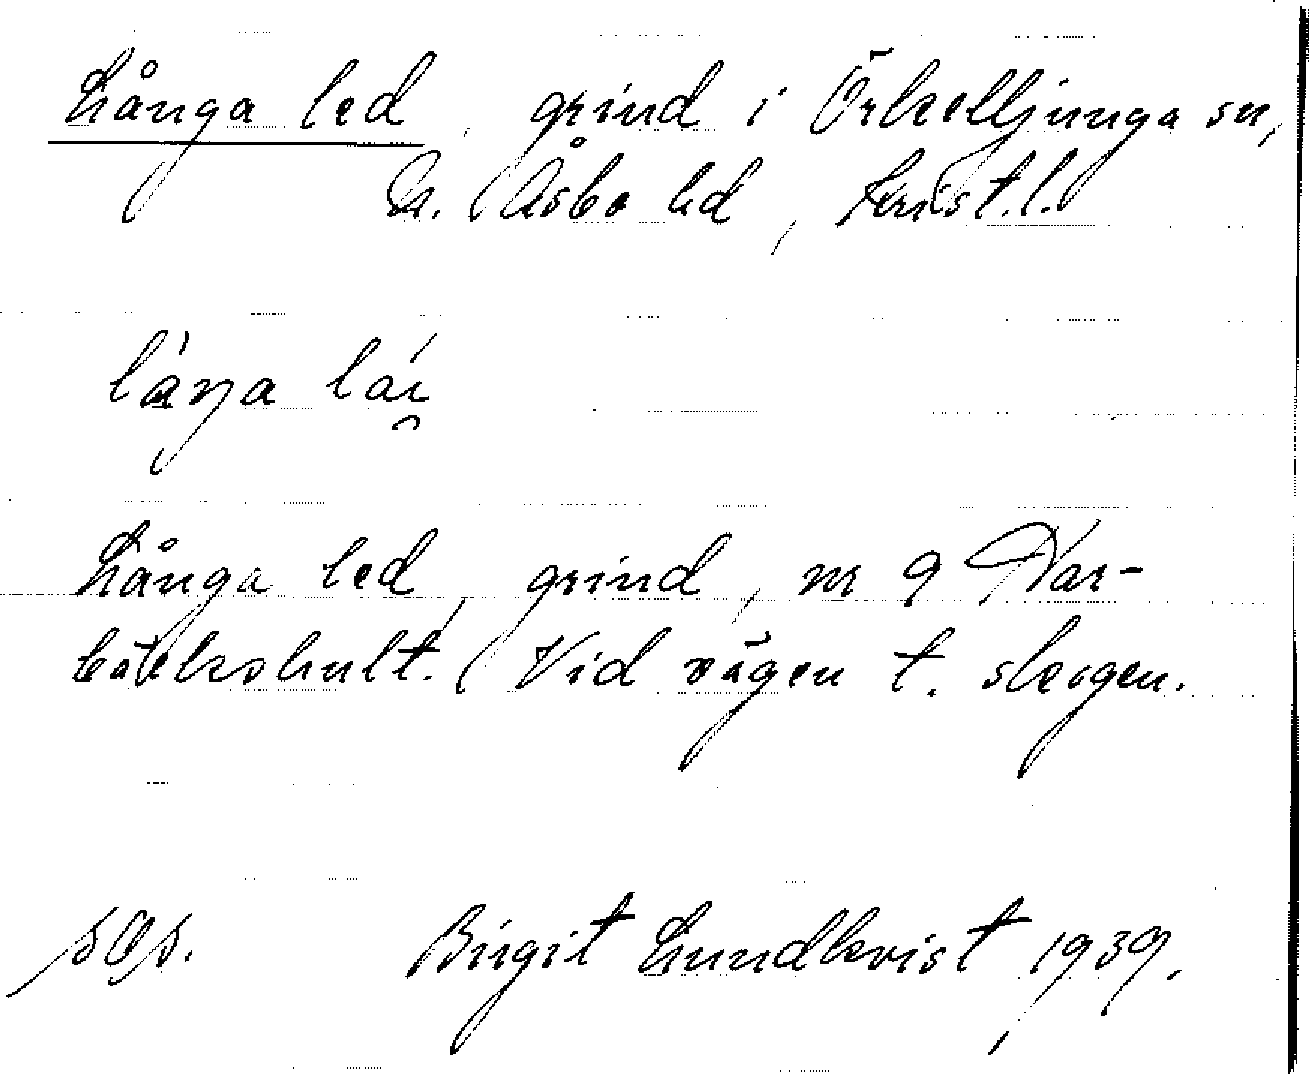 Långa led, grind i Örkelljunga sn,
N. Åsbo hd, Krist. l.
låŋa lái̯
Långa led, grind, nr 9 Var-
bäckshult. Vid vägen t. skogen.
Birgit Lundkvist 1939.